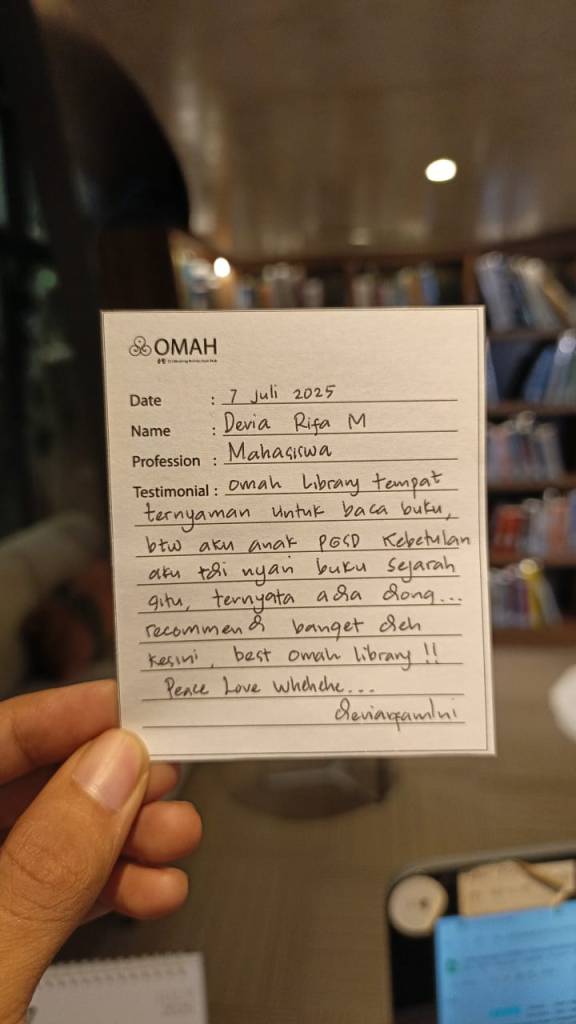 OMAH
Date : 7 Juli 2025
Name : Devia Rifa M
Profession : Mahasiswa
Testimonial : Omah Library tempat
ternyaman untuk baca buku,
btw aku anak PGSD Kebetulan
aku tdi nyari buku sejarah
gitu, ternyata ada dong...
recommend banget deh
kesini, best omah library !!
Peace Love Whehehe...